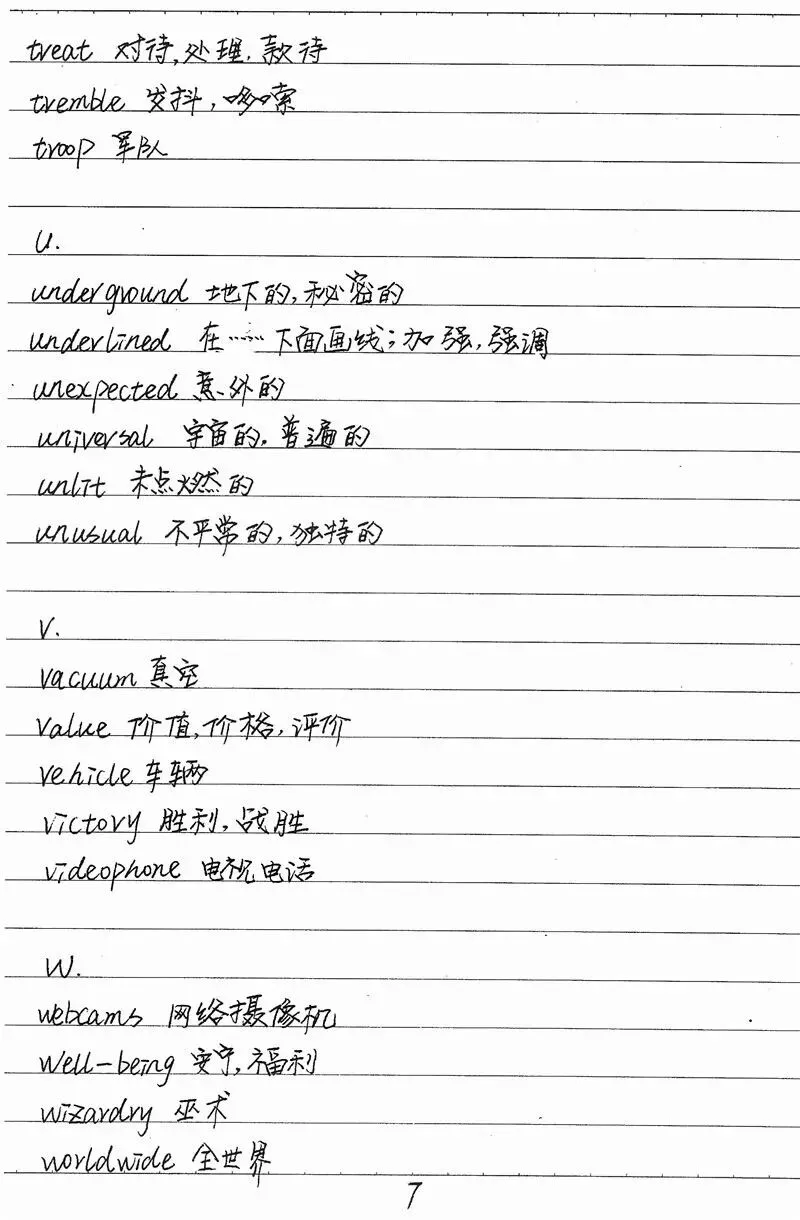 treat 对待,处理,款待
tremble 发抖,哆嗦
troop 军队
U.
underground 地下的,秘密的
underlined 在……下面画线;加强,强调
unexpected 意外的
universal 宇宙的,普遍的
unlit 未点燃的
unusual 不平常的,独特的
V.
vacuum 真空
value 价值,价格,评价
vehicle 车辆
victory 胜利,战胜
videophone 电视电话
W.
webcams 网络摄像机
well-being 安宁,福利
wizardry 巫术
worldwide 全世界
7